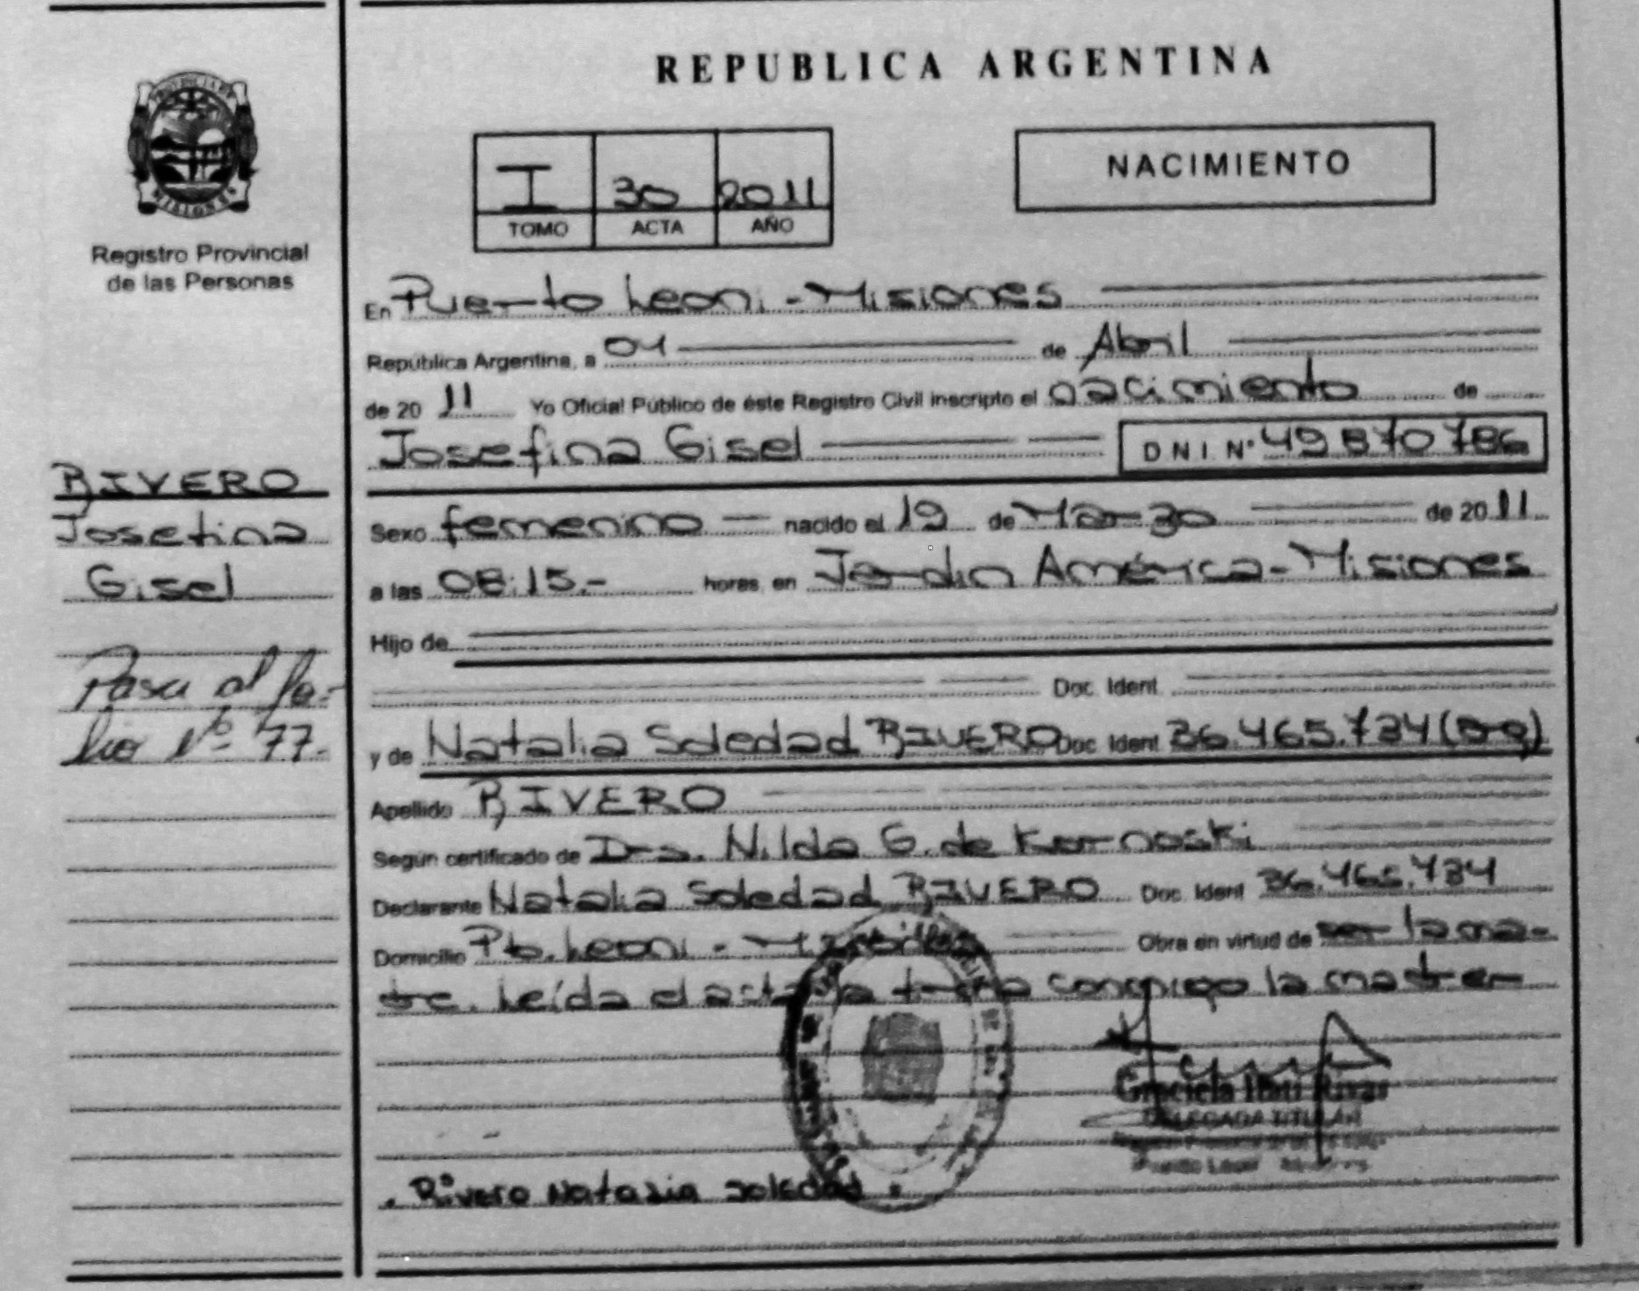 REPUBLICA ARGENTINA
PROVINCIA DE MISIONES
Registro Provincial
de las Personas
I 30 2011
TOMO ACTA AÑO
NACIMIENTO
En Puerto Leoni - Misiones
República Argentina, a 01 de Abril
de 2011 Yo Oficial Público de éste Registro Civil inscripto el nacimiento de
Josefina Gisel D N I. Nº 49 870 786
RIVERO
Josefina
Gisel
Sexo femenino nacido el 19 de Marzo de 2011
a las 08:15.- horas, en Jardin América - Misiones
Hijo de
Doc. Ident.
Pasa al fo-
lio Nº 77.
y de Natalia Soledad RIVERO Doc. Ident. 36.465.734 (arg)
Apellido RIVERO
Según certificado de Dra. Nilda G. de Kornoski
Declarante Natalia Soledad RIVERO Doc. Ident 36.465.734
Domicilio Pto. Leoni - Misiones Obra en virtud de ser la ma-
dre. Leída el acta la firma conmigo la madre
Graciela Itatí Rivas
DELEGADA TITULAR
. Rivero Natalia Soledad .